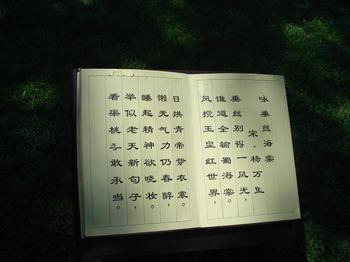 咏垂丝海棠
宋·杨万里
垂丝别得一风光，
谁道全输蜀海棠。
风搅玉皇红世界，
日烘青帝紫衣裳。
懒无气力仍春醉，
睡起精神欲晓妆。
举似老天新句子，
看渠桃李敢承当。